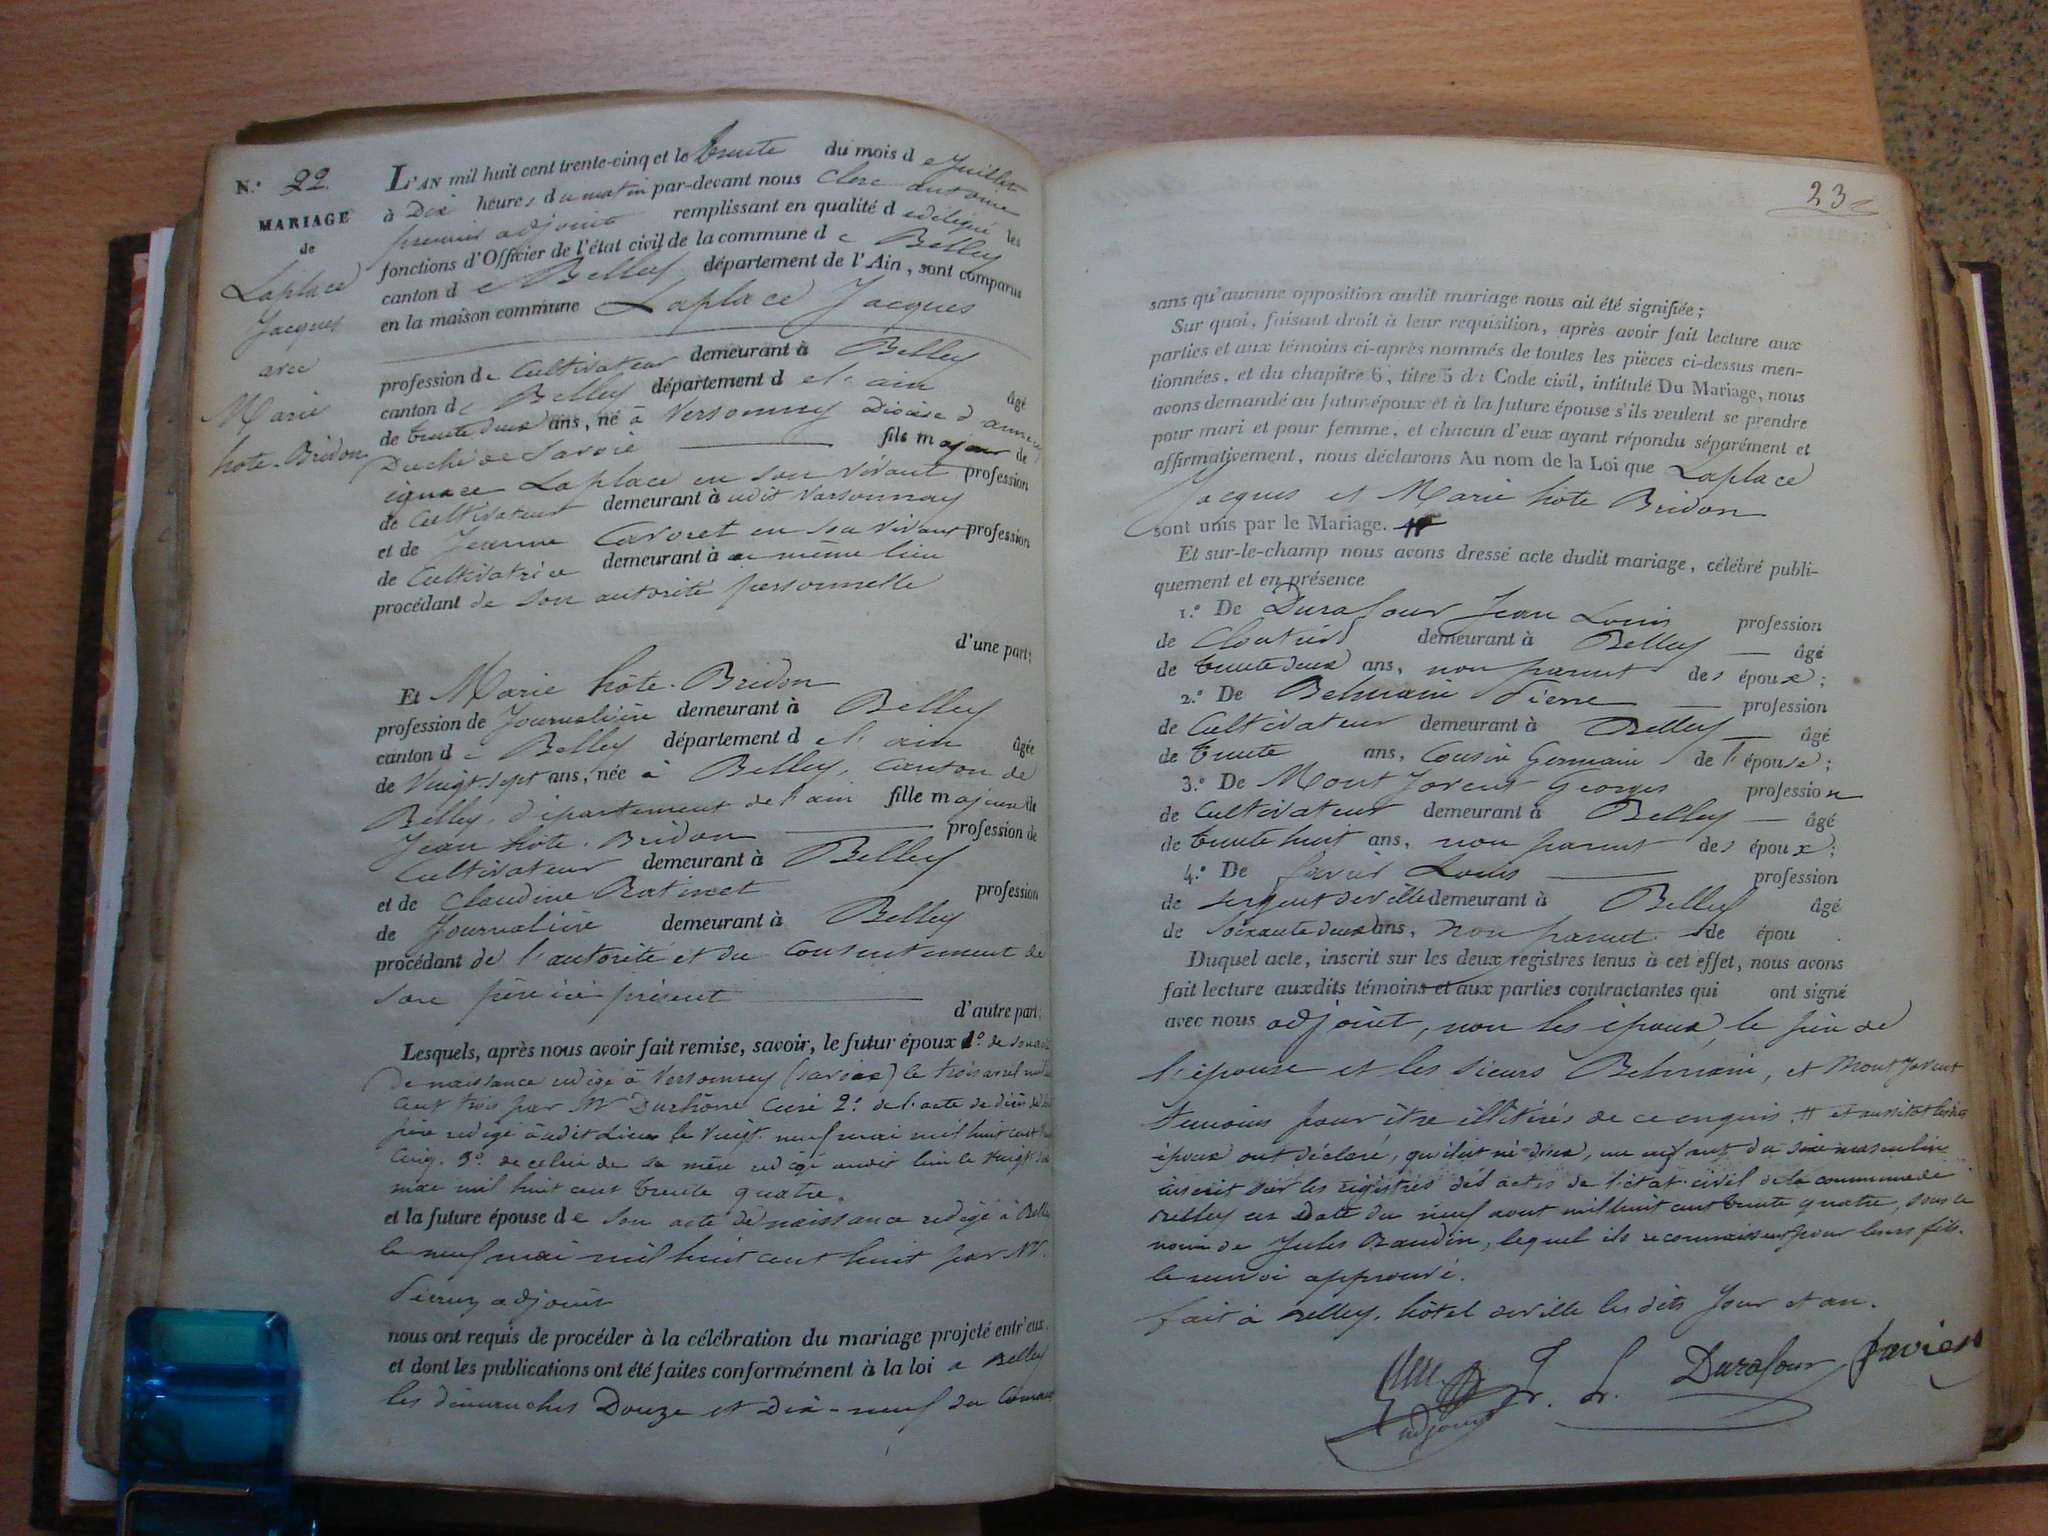 N.° 22.
MARIAGE
de
Laplace
Jacques
avec
Marie
hôte-Bridon
L'AN mil huit cent trente-cinq et le trente du mois de Juillet
à Dix heures du matin par-devant nous Clerc antoine
premier adjoint remplissant en qualité de délégué les
fonctions d'Officier de l'état civil de la commune de Belley
canton de Belley département de l'Ain, sont comparus
en la maison commune Laplace Jacques
profession de Cultivateur demeurant à Belley
canton de Belley département de l'ain âgé
de trente deux ans, né à Versonney diocèse d'annecy
Duché de Savoie fils majeur de
ignace Laplace en son vivant profession
de Cultivateur demeurant à udit Versonnay
et de Jeanne Cavoret en sa vivant profession
de Cultivatrice demeurant à au même lieu
procédant de son autorité personnelle
d'une part;
Et Marie hôte-Bridon
profession de Journalière demeurant à Belley
canton de Belley département de l'ain âgée
de Vingt-sept ans, née à Belley, Canton de
Belley, département de l'ain fille majeure de
Jean hôte-Bridon profession de
Cultivateur demeurant à Belley
et de Claudine Ratinet profession
de Journalière demeurant à Belley
procédant de l'autorité et du consentement de
son père ici présent
d'autre part;
Lesquels, après nous avoir fait remise, savoir, le futur époux 1°. de son acte
de naissance rédigé à Versonney (Savoie) le trois avril mil huit
cent trois par Mr curé 2°. de l'acte de décès de son
père rédigé audit Lieu le Vingt-neuf mai mil huit cent
cinq. 3°. de celui de sa mère rédigé audit lieu le Vingt
mai mil huit cent trente quatre.
et la future épouse de son acte de naissance rédigé à Belley
le neuf mai mil huit cent huit par Mr.
adjoint
nous ont requis de procéder à la célébration du mariage projeté entr'eux,
et dont les publications ont été faites conformément à la loi à Belley
les dimanches Douze et Dix-neuf du Courant
23
sans qu'aucune opposition audit mariage nous ait été signifiée;
Sur quoi, faisant droit à leur requisition, après avoir fait lecture aux
parties et aux témoins ci-après nommés de toutes les pièces ci-dessus men-
tionnées, et du chapitre 6, titre 5 du Code civil, intitulé Du Mariage, nous
avons demandé au futur époux et à la future épouse s'ils veulent se prendre
pour mari et pour femme, et chacun d'eux ayant répondu séparément et
affirmativement, nous déclarons Au nom de la Loi que Laplace
Jacques et Marie hôte Bridon
sont unis par le Mariage. #
Et sur-le-champ nous avons dressé acte dudit mariage, célébré publi-
quement et en présence
1.° De Durafour Jean Louis profession
de Cloutier demeurant à Belley âgé
de trente deux ans, non parent des époux;
2.° De Belmain Pierre profession
de Cultivateur demeurant à Belley âgé
de trente ans, Cousin Germain de l'épouse;
3.° De Mont Jovent Georges profession
de Cultivateur demeurant à Belley âgé
de trente huit ans, non parent des époux;
4.° De favier Louis profession
de Sergent de ville demeurant à Belley âgé
de Soixante deux ans, Non parent de épou
Duquel acte, inscrit sur les deux registres tenus à cet effet, nous avons
fait lecture auxdits témoins et aux parties contractantes qui ont signé
avec nous adjoint, non les époux, le père de
l'épouse et les Sieurs Belmain, et Mont Jovent
témoins pour être illitérés de ce enquis. # et aussitôt lesdits
époux ont déclaré, qu'il est né d'eux, un enfant du sexe masculin
inscrit sur les registres des actes de l'état civil de la commune de
Belley en Date du neuf aout mil huit cent trente quatre, sous le
nom de Jules Baudin, lequel ils reconnaissent pour leur fils.
le renvoi approuvé.
fait à Belley, hôtel de ville les dits Jour et an.
J. L. Durafour favier
adjoint